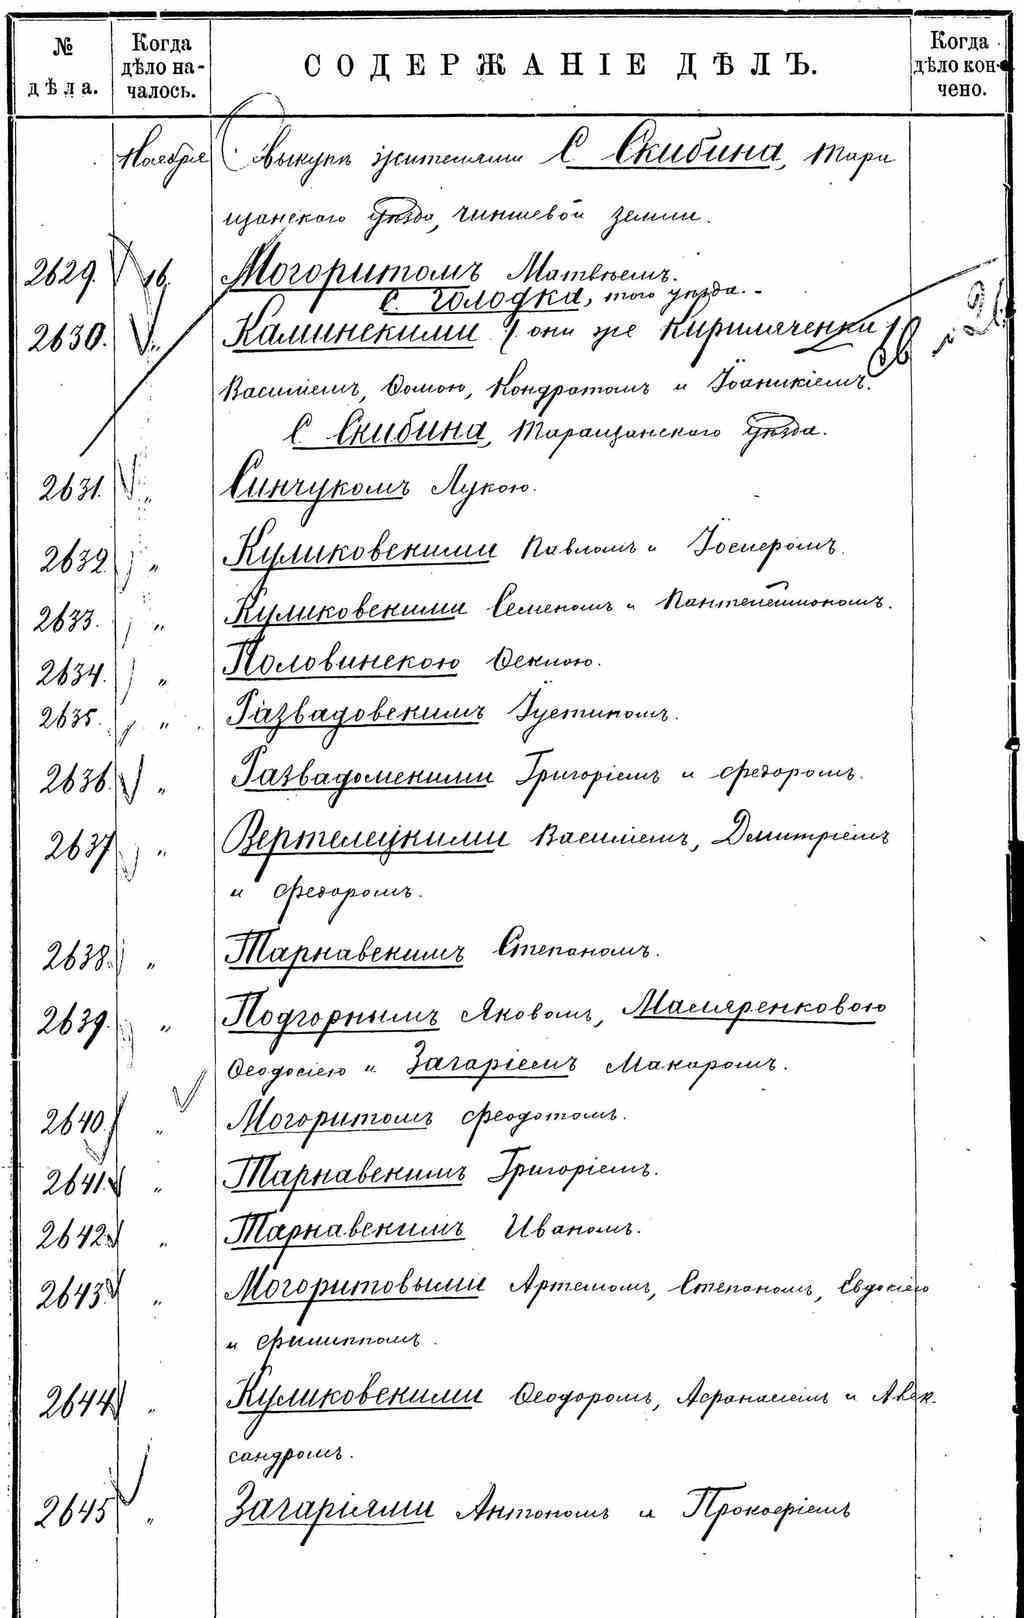 № дѣла.
Когда дѣло началось.
СОДЕРЖАНІЕ ДѢЛЪ.
Когда дѣло кончено.
Ноября Выкупъ жителями С Скибина, Тара
щанскаго уѣзда, чиншевой земли.
2629. 16. Могоритомъ Матвѣемъ.
С. Голодка, того уѣзда.
2630. " Каминскими (они же Кириляченки)
Василіемъ, Ѳомою, Кондратомъ и Іоаникіемъ.
С Скибина, Таращанскаго уѣзда.
2631. " Синчукомъ Лукою.
2632. " Куликовскими Павломъ и Іосиѳомъ.
2633. " Куликовскими Семеномъ и Пантелеймономъ.
2634. " Половинскою Ѳеклою.
2635. " Развадовскимъ Іустиномъ.
2636. " Развадомскими Григоріемъ и Федоромъ.
2637 " Вертелецкими Василіемъ, Дмитріемъ
и Федоромъ.
2638. " Тарнавскимъ Степаномъ.
2639. " Подгорнымъ Яковомъ, Маляренковою
Ѳеодосіею и Загаріемъ Макаромъ.
2640. " Могоритомъ Феодотомъ.
2641. " Тарнавскимъ Григоріемъ.
2642. " Тарнавскимъ Иваномъ.
2643. " Могоритовыми Артемомъ, Степаномъ, Евдокіею
и Филиппомъ.
2644. " Куликовскими Ѳеодоромъ, Афанасіемъ и Алек-
сандромъ.
2645 " Загаріями Антономъ и Прокофіемъ